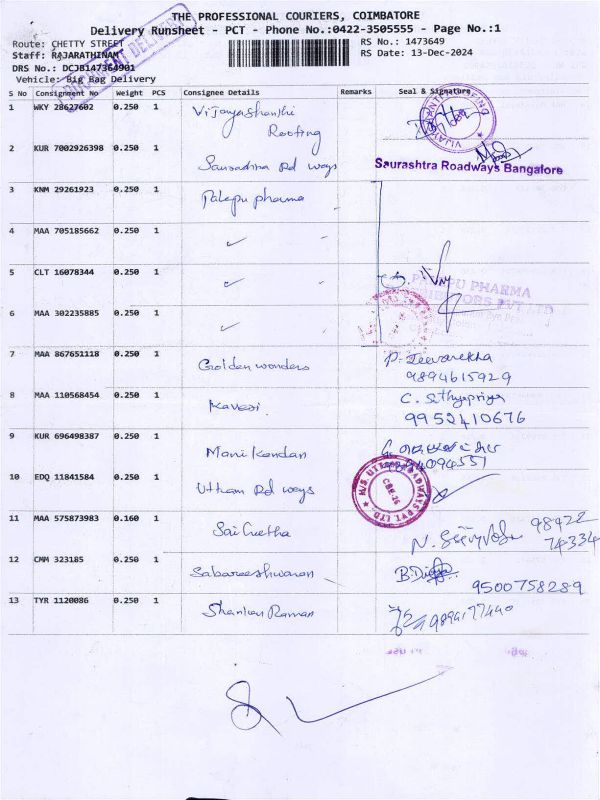 THE PROFESSIONAL COURIERS, COIMBATORE
Delivery Runsheet - PCT - Phone No.:0422-3505555 - Page No.:1
Route: CHETTY STREET
RS No.: 1473649
Staff: RAJARATHINAM
RS Date: 13-Dec-2024
DRS No.: DCJB147364901
Vehicle: Big Bag Delivery
DOCUMENT DELIVERY
S No Consignment No Weight PCS Consignee Details Remarks Seal & Signature
1 WKY 28627602 0.250 1 Vijayashanthi
Roofing
2 KUR 7002926398 0.250 1 Saurashtra Rd ways Saurashtra Roadways Bangalore
3 KNM 29261923 0.250 1 Palepu pharma
4 MAA 705185662 0.250 1
5 CLT 16078344 0.250 1
PHARMA
PVT LTD
6 MAA 302235885 0.250 1
7 MAA 867651118 0.250 1 Golden wonders P. Jeevarekha
9894615929
8 MAA 110568454 0.250 1 Kaveri C. Sathyapriya
9952410676
9 KUR 696498387 0.250 1 Manikandan
10 EDQ 11841584 0.250 1 Uttham Rd ways
M/S. UTTHAM ROADWAYS PVT. LTD.
CBE-26
11 MAA 575873983 0.160 1 Sai Geetha 98422
74334
12 CMM 323185 0.250 1 Sabareeshwaran B.Divya
9500758289
13 TYR 1120086 0.250 1 Shankar Raman 9894177440